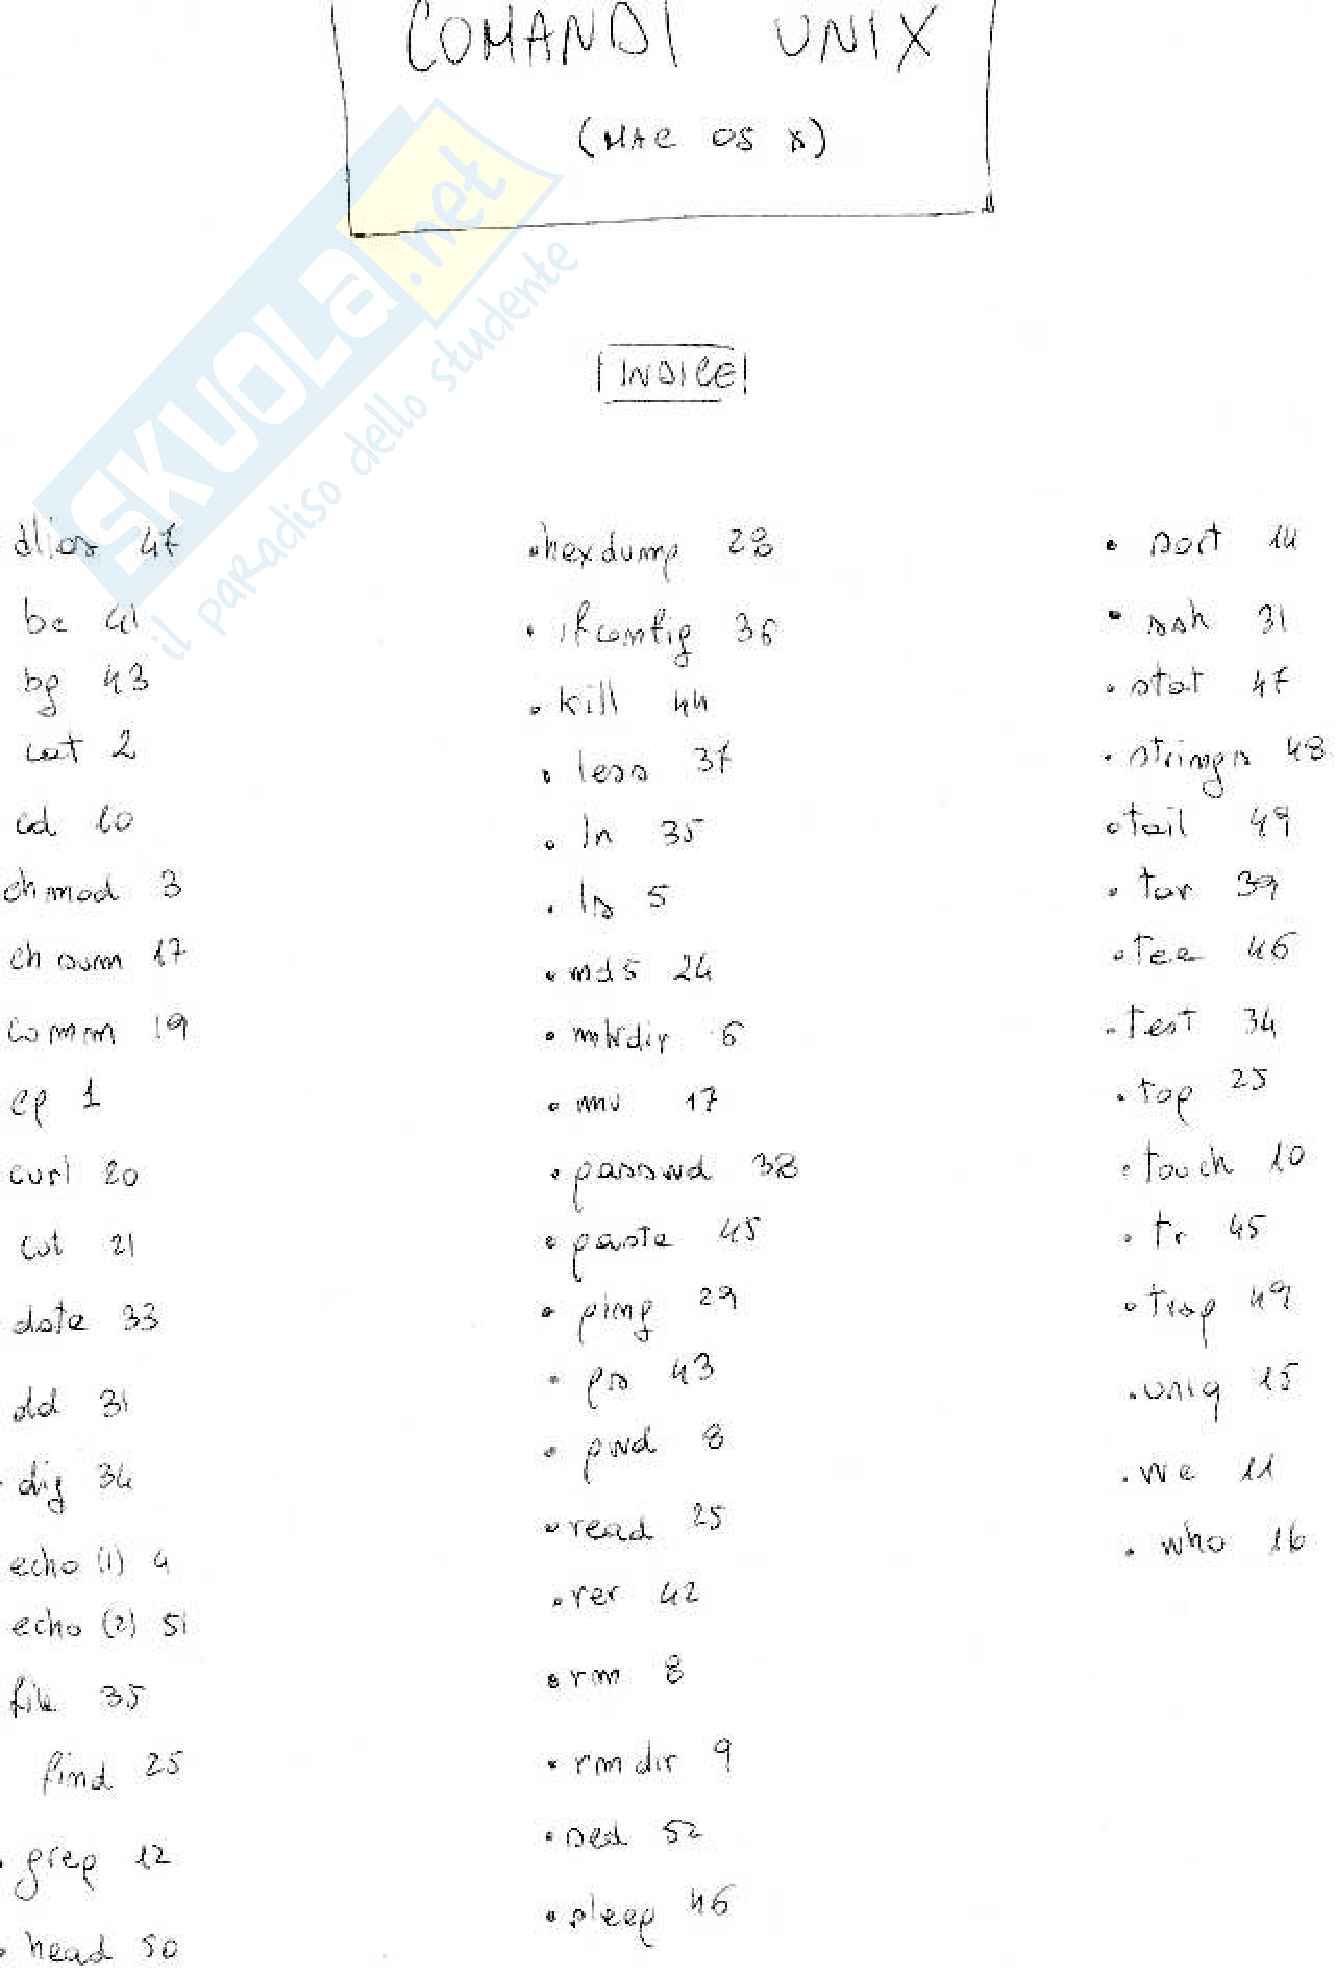 COMANDI UNIX
(MAC OS X)
SKUOLA.net
il paradiso dello studente
INDICE
alias 47
bc 41
bg 43
cat 2
cd 10
chmod 3
chsum 17
comm 19
cp 1
curl 20
cut 21
date 33
dd 31
dig 34
echo (1) 4
echo (2) 51
file 35
find 25
• grep 12
• head 50
• hexdump 28
• ifconfig 36
• kill 44
• less 37
• ln 35
• ls 5
• md5 24
• mkdir 6
• mv 17
• passwd 38
• paste 45
• ping 29
• ps 43
• pwd 8
• read 25
• rer 42
• rm 8
• rmdir 9
• sed 52
• sleep 46
• sort 14
• ssh 31
• stat 47
• strings 48
• tail 49
• tar 39
• tee 46
• test 34
• top 25
• touch 10
• tr 45
• trap 49
• uniq 15
• wc 11
• who 16